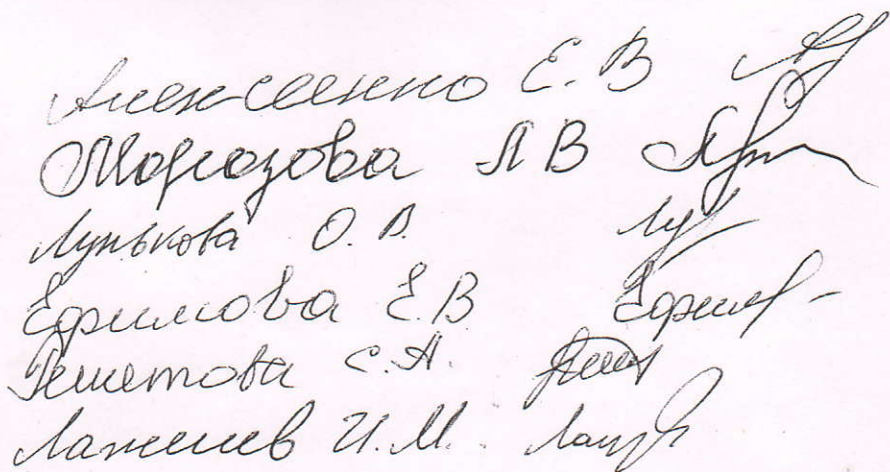 Алексеенко Е. В
Морозова Л В
Лунькова О. В.
Ефимова Е. В
Решетова С. А.
И. М.